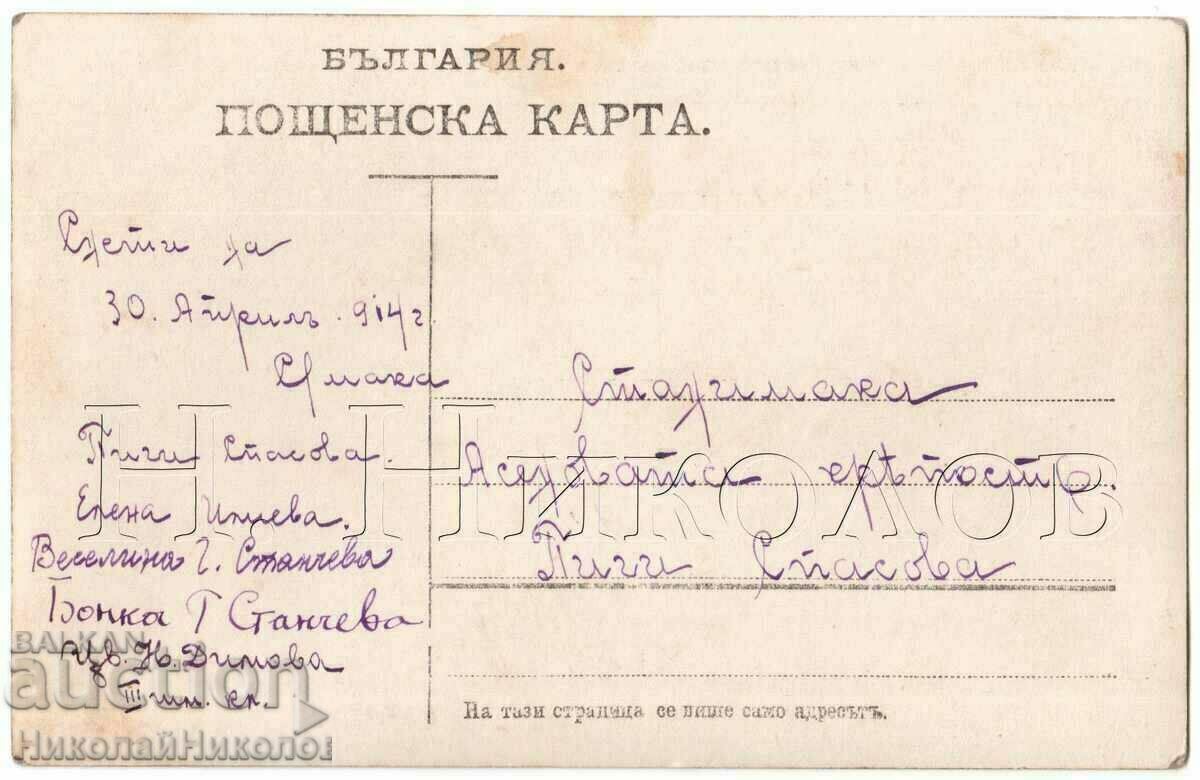 БЪЛГАРИЯ.
ПОЩЕНСКА КАРТА.
30. Априлъ. 914 г
Стъмака
Пиги Спасова.
Елена Илиева.
Веселина Г. Станчева
Бонка Г Станчева
Цв. Н. Димова
III гим. кл.
Станимака
крѣпость.
Пиги Спасова
На тази страница се пише само адресътъ.
Н. НИКОЛОВ
BALKAN
auction
НиколайНиколов